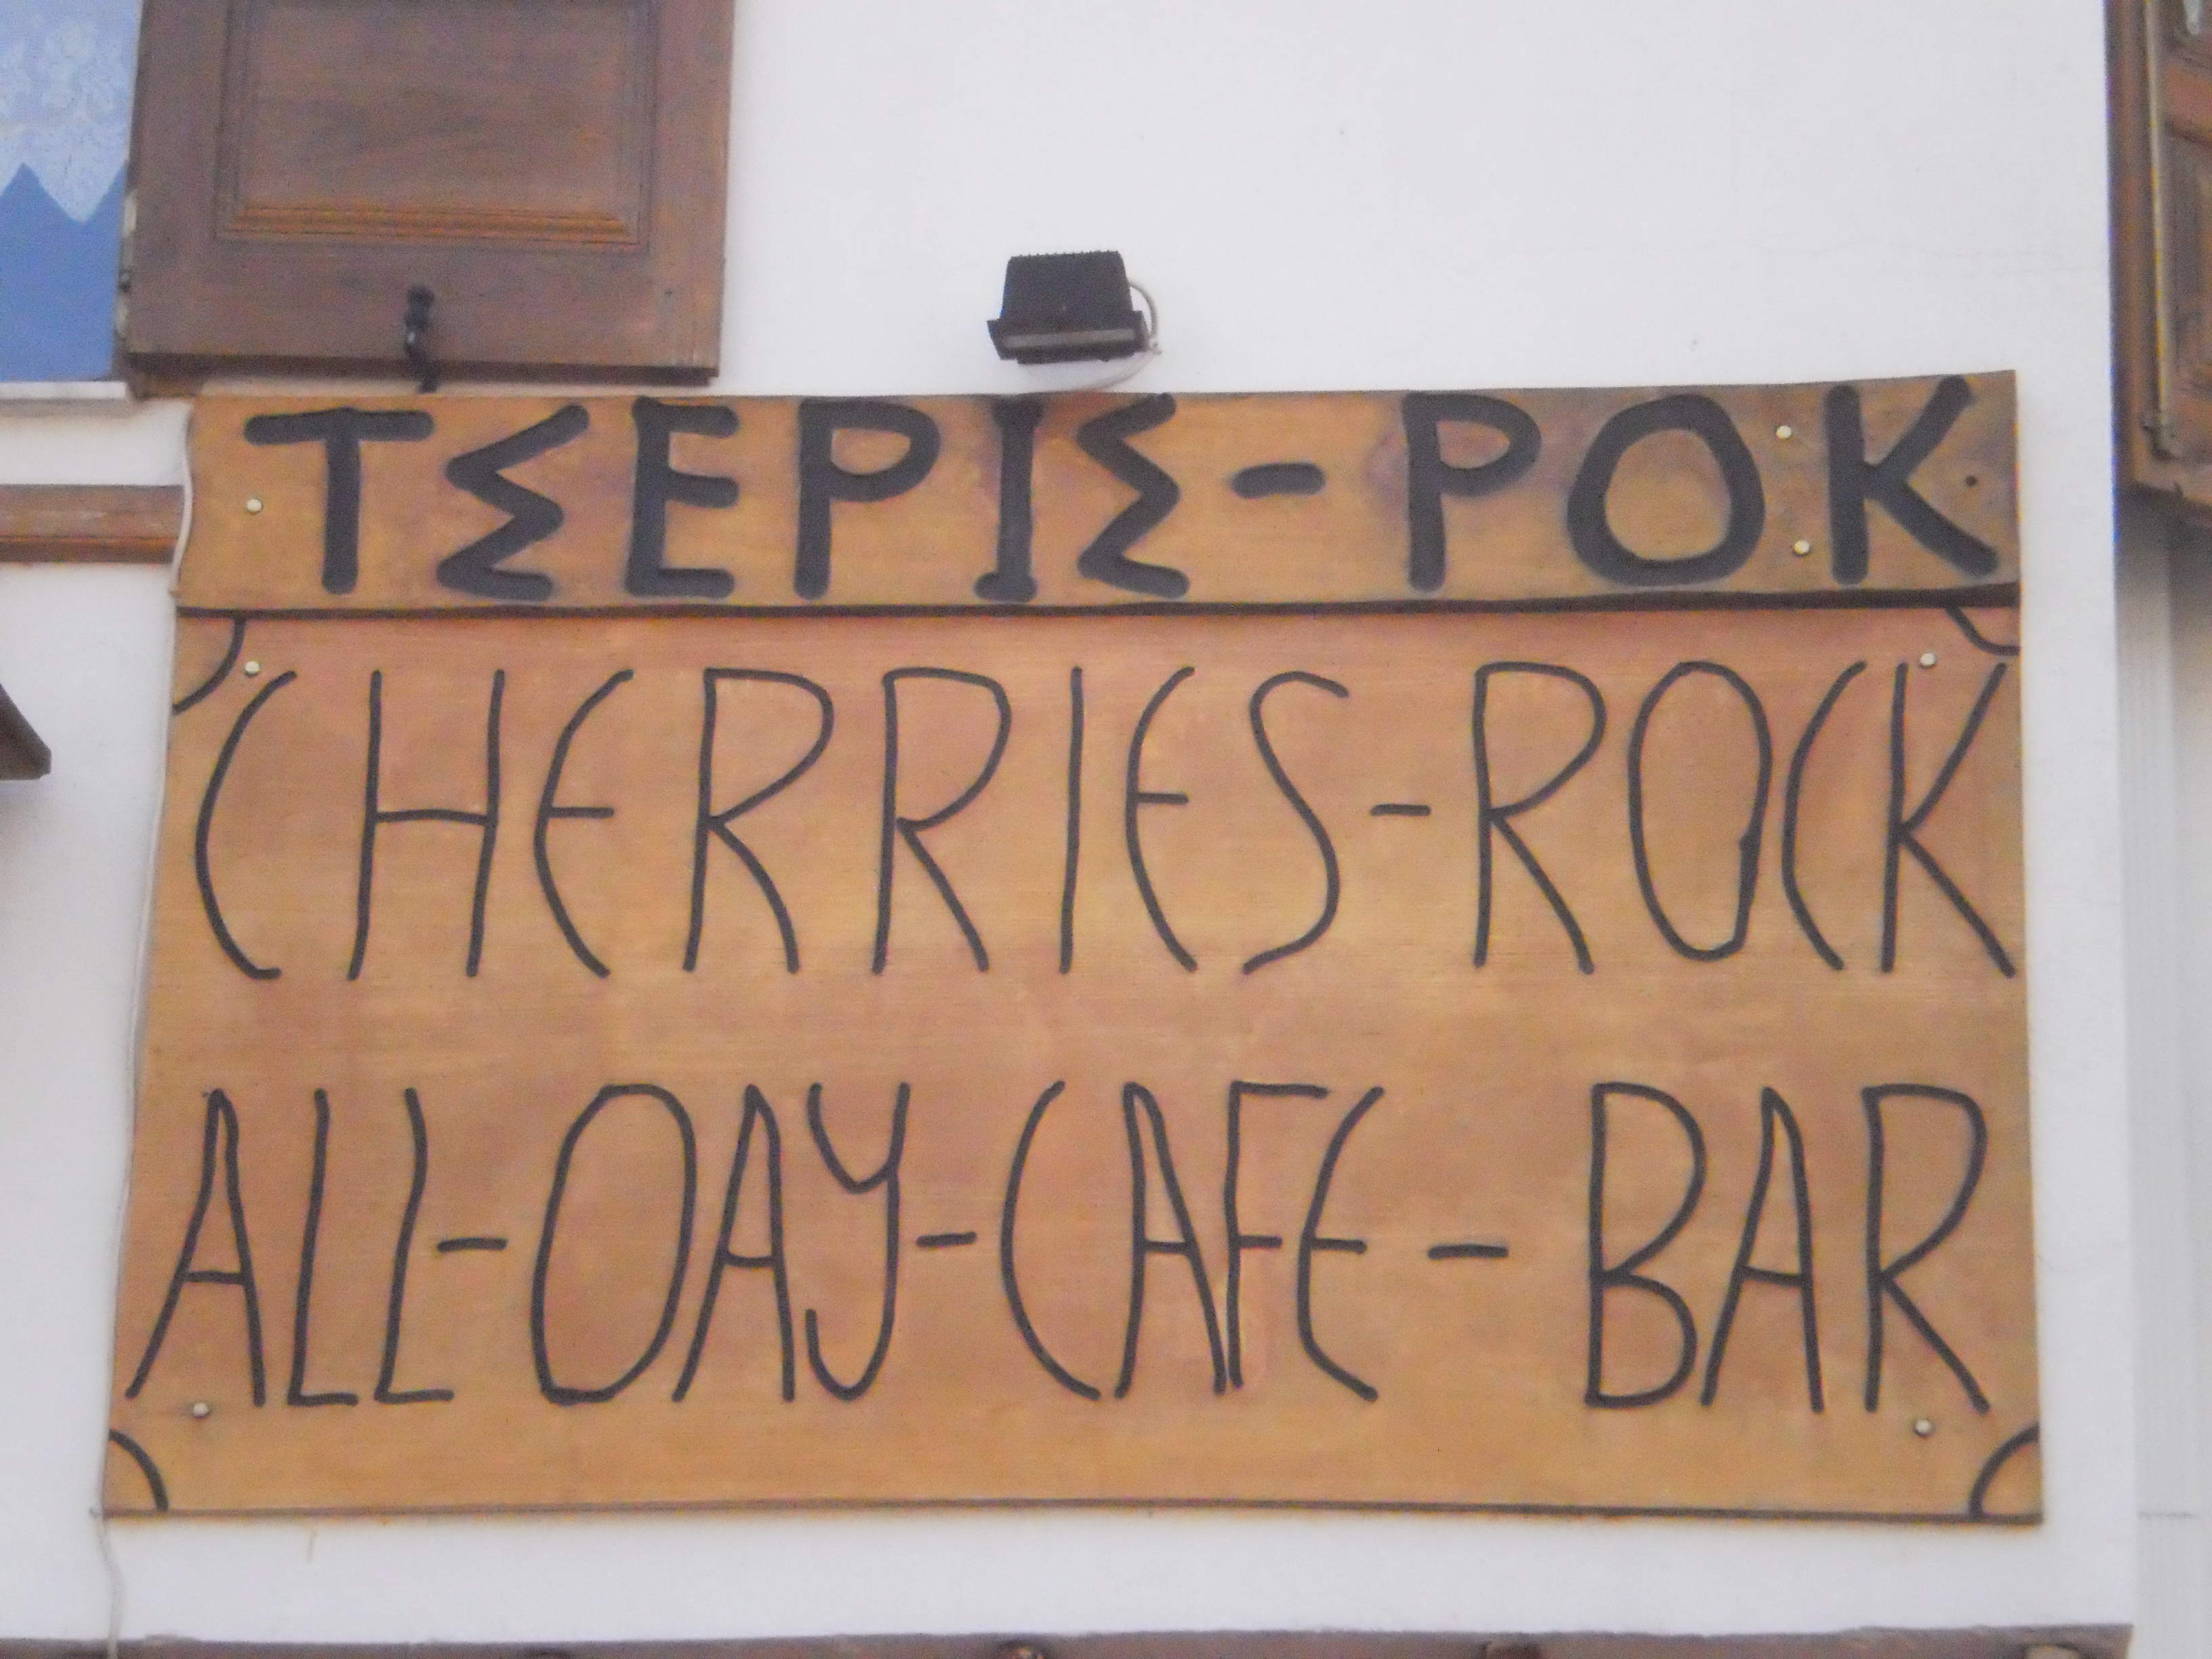 ΤΣΕΡΙΣ-ΡΟΚ
CHERRIES-ROCK
ALL-DAY-CAFE-BAR